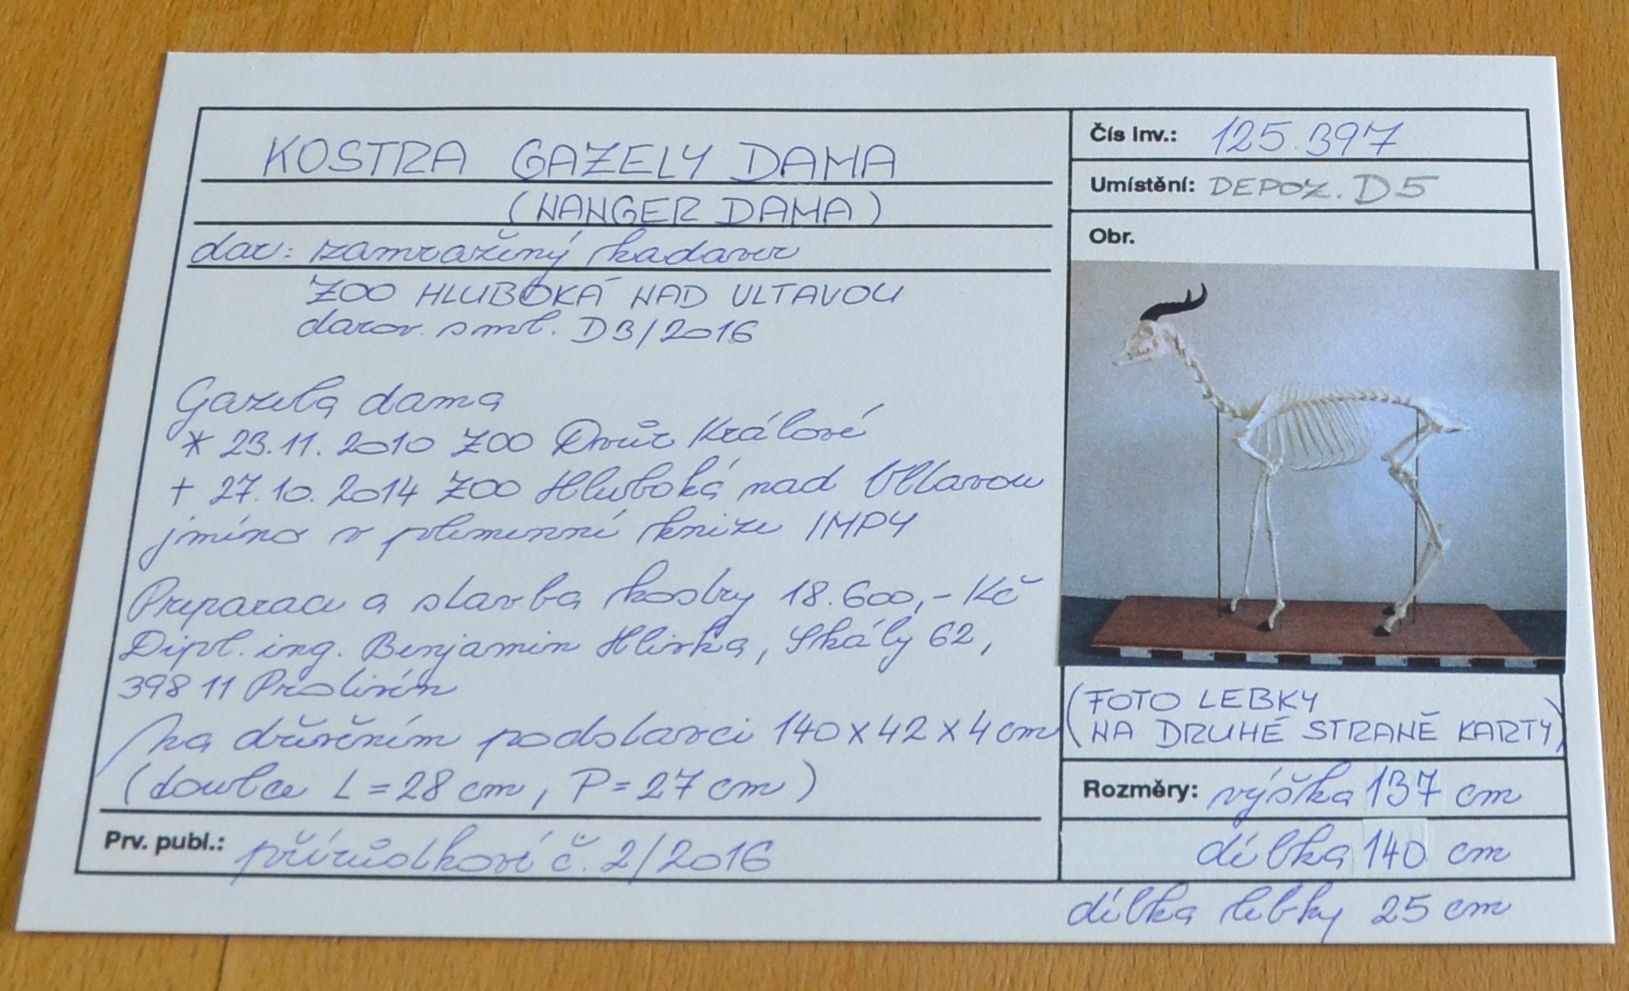 KOSTRA GAZELY DAMA
(NANGER DAMA)
dar: zamražený kadaver
ZOO HLUBOKÁ NAD VLTAVOU
darov. sml. D3/2016
Gazela dama
* 23.11.2010 ZOO Dvůr Králové
+ 27.10.2014 ZOO Hluboká nad Vltavou
jméno v plemenné knize IMPY
Preparace a stavba kostry 18.600,- Kč
Dipl. ing. Benjamin Hlivka, Skály 62,
398 11 Protivín
Na dřevěném podstavci 140 x 42 x 4 cm
(toulce L = 28 cm, P = 27 cm)
Prv. publ.: přírůstkové č. 2/2016
Čís inv.: 125.397
Umístění: DEPOZ. D5
Obr.
(FOTO LEBKY
NA DRUHÉ STRANĚ KARTY)
Rozměry: výška 137 cm
délka 140 cm
délka lebky 25 cm